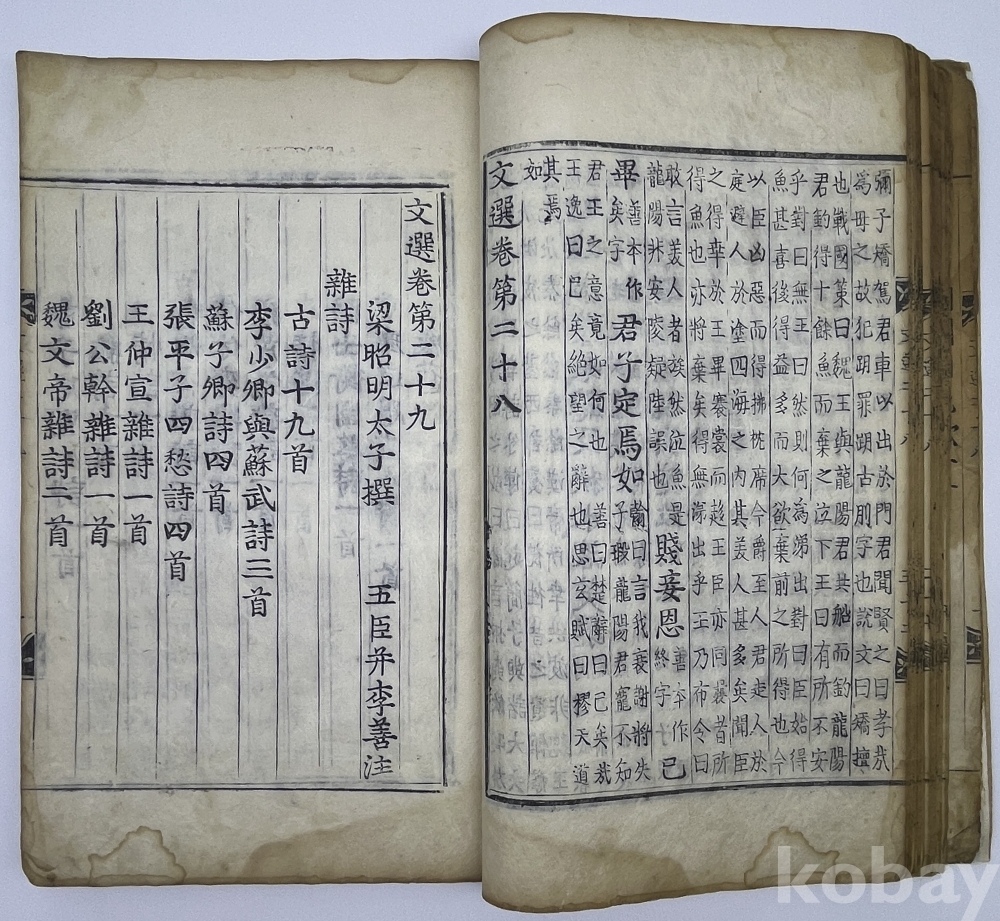 彌子矯駕君車以出於門君聞賢之曰孝哉
爲母之故犯跀罪跀古刖字也說文曰矯擅
也戰國策曰魏王與龍陽君共船而釣龍陽
君釣得十餘魚而棄之泣下王曰有所不安
乎對曰無王曰然則何為涕出對曰臣始得
魚甚喜後得益多而大欲棄前之所得也今
以臣凶惡而得拂枕席今爵至人君走人於
庭避人於塗四海之內其美人甚多矣聞臣
之得幸於王畢褰裳而趍王臣亦同曩昔所
得魚也亦將棄矣得無涕出乎王乃布令曰
敢言美人者族然泣魚是龍陽非安陵疑陸誤也賤妾恩善本作終字已
畢善本作矣字君子定焉如翰曰言我衰謝將失子瑕龍陽君寵不知
君王之意竟如何也善曰楚辭曰已矣哉
王逸曰已矣絕望之辭也思玄賦曰摎天道
其焉
如
文選卷第二十八
文選卷第二十九
梁昭明太子撰 五臣并李善注
雜詩
古詩十九首
李少卿與蘇武詩三首
蘇子卿詩四首
張平子四愁詩四首
王仲宣雜詩一首
劉公幹雜詩一首
魏文帝雜詩二首
kobay